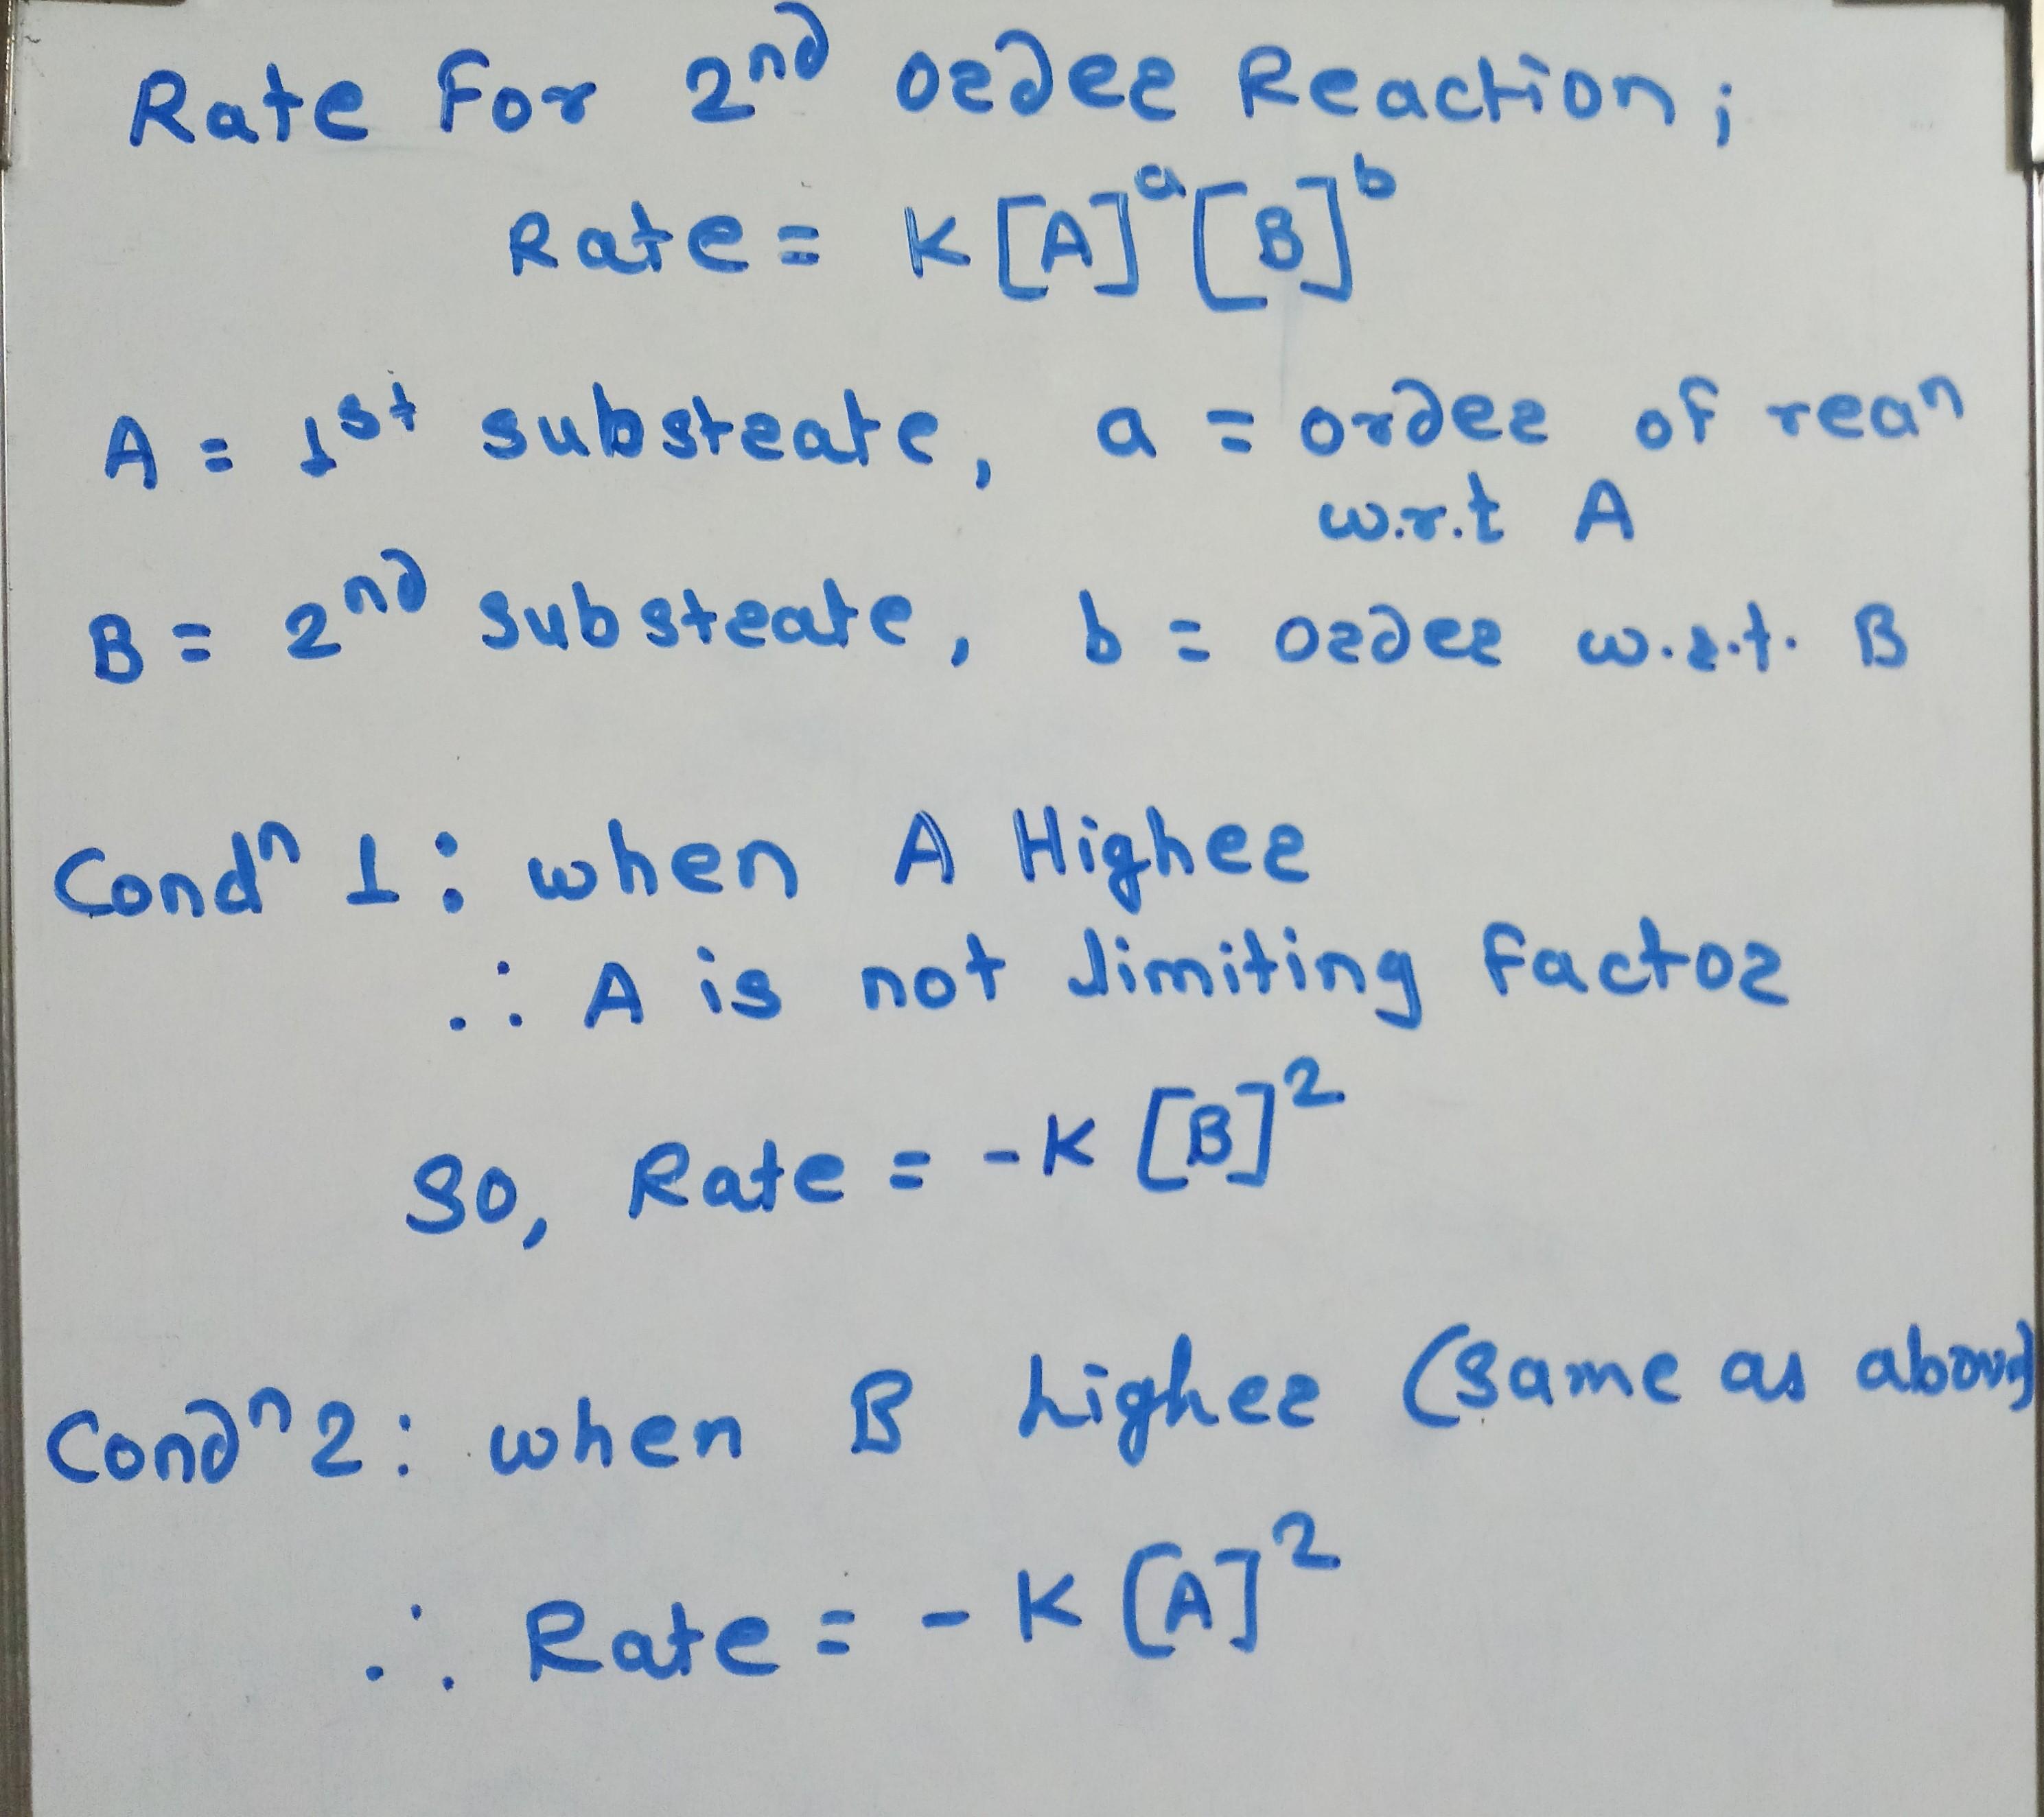 Rate For 2nd order Reaction;
Rate = K[A]^a [B]^b
A = 1st substrate, a = order of rean
w.r.t A
B = 2nd substrate, b = order w.r.t. B
Condn 1: when A Higher
∴ A is not limiting Factor
So, Rate = -K [B]^2
Condn 2: when B higher (same as above)
∴ Rate = -K [A]^2